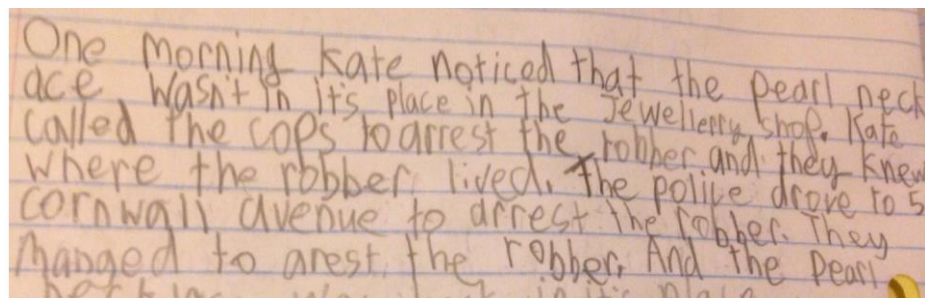 One morning Kate noticed that the pearl neck
ace wasn't in it's place in the Jewellerry shop. Kate
called the cops to arrest the robber and they knew
where the robber lived. The police drove to 5
cornwall avenue to arrest the robber. They
Manged to arest the robber. And the pearl
in it's place